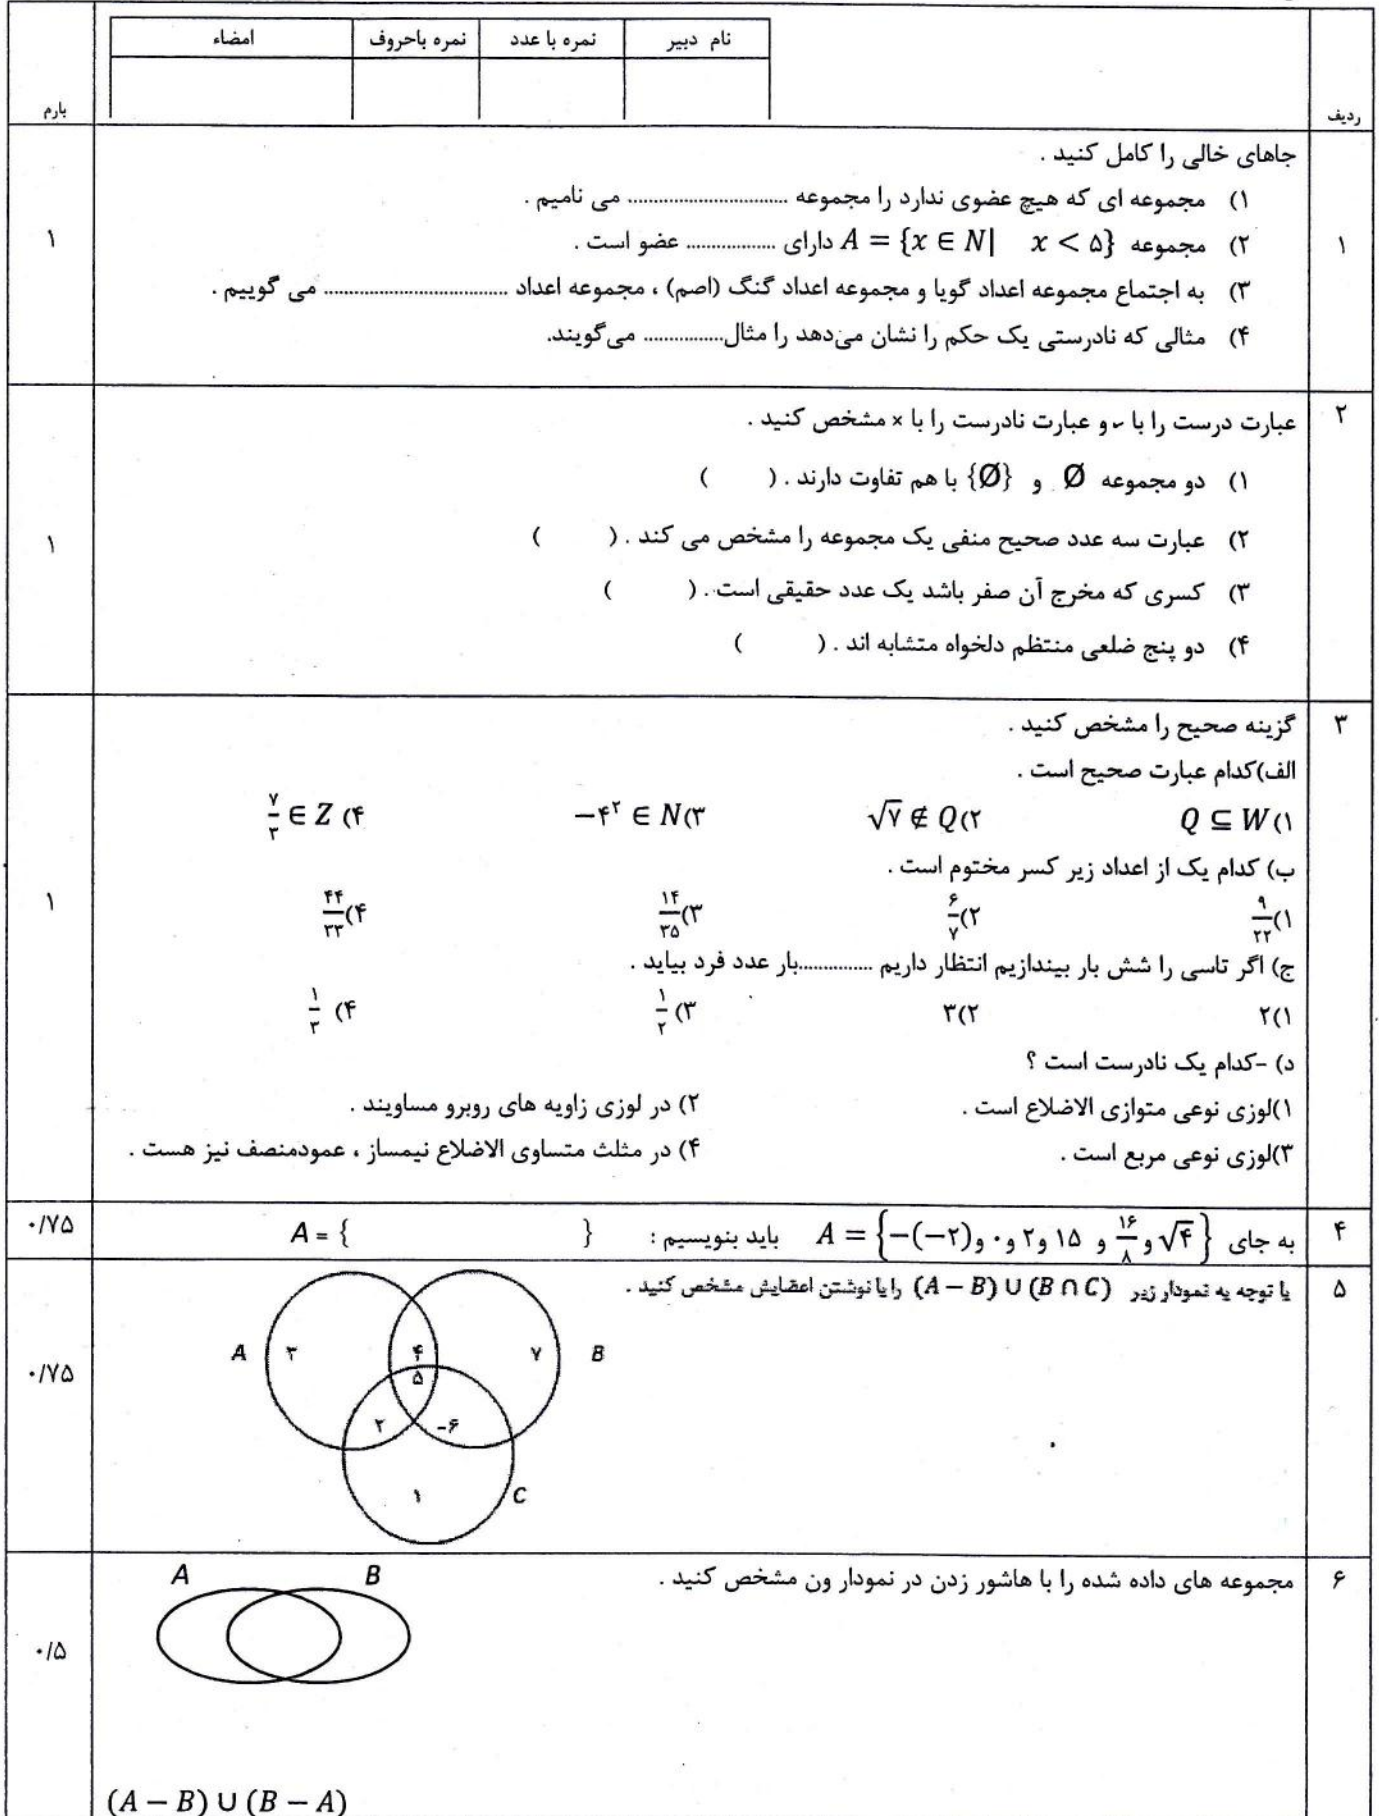 نام دبیر	نمره با عدد	نمره باحروف	امضاء
ردیف	بارم
۱	جاهای خالی را کامل کنید .	۱
۱) مجموعه ای که هیچ عضوی ندارد را مجموعه ................................ می نامیم .
۲) مجموعه A = {x ∈ N|   x < ۵} دارای .................. عضو است .
۳) به اجتماع مجموعه اعداد گویا و مجموعه اعداد گنگ (اصم) ، مجموعه اعداد ..................................... می گوییم .
۴) مثالی که نادرستی یک حکم را نشان می‌دهد را مثال................ می‌گویند.
۲	عبارت درست را با ✓ و عبارت نادرست را با × مشخص کنید .	۱
۱) دو مجموعه Ø و {Ø} با هم تفاوت دارند . (      )
۲) عبارت سه عدد صحیح منفی یک مجموعه را مشخص می کند . (      )
۳) کسری که مخرج آن صفر باشد یک عدد حقیقی است . (      )
۴) دو پنج ضلعی منتظم دلخواه متشابه اند . (      )
۳	گزینه صحیح را مشخص کنید .	۱
الف)کدام عبارت صحیح است .
۱) Q ⊆ W	۲) √۷ ∉ Q	۳) −۴² ∈ N	۴) ۷/۳ ∈ Z
ب) کدام یک از اعداد زیر کسر مختوم است .
۱) ۹/۲۲	۲) ۶/۷	۳) ۱۴/۳۵	۴) ۴۴/۳۳
ج) اگر تاسی را شش بار بیندازیم انتظار داریم ...............بار عدد فرد بیاید .
۱) ۲	۲) ۳	۳) ۱/۲	۴) ۱/۳
د) -کدام یک نادرست است ؟
۱)لوزی نوعی متوازی الاضلاع است .	۲) در لوزی زاویه های روبرو مساویند .
۳)لوزی نوعی مربع است .	۴) در مثلث متساوی الاضلاع نیمساز ، عمودمنصف نیز هست .
۴	به جای A = {−(−۲) و ۰ و ۲ و ۱۵ و ۱۶/۸ و √۴} باید بنویسیم : A = {      }	۰/۷۵
۵	با توجه به نمودار زیر (A − B) ∪ (B ∩ C) را با نوشتن اعضایش مشخص کنید .	۰/۷۵
A ۳ ۴ ۷ B
۵
۲ -۶
۱ C
۶	مجموعه های داده شده را با هاشور زدن در نمودار ون مشخص کنید .	۰/۵
A B
(A − B) ∪ (B − A)